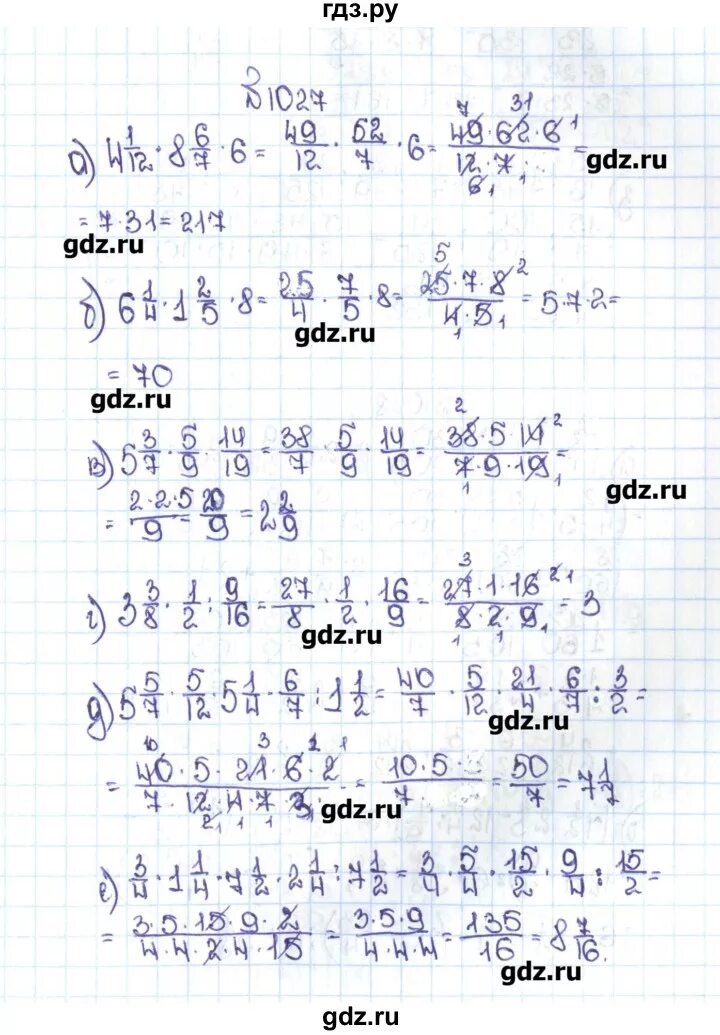 гдз.ру
№1027
а) 4 1/12 · 8 6/7 · 6 = 49/12 · 52/7 · 6 = 49·62·6/12·7 =
gdz.ru
= 7·31 = 217
gdz.ru
б) 6 1/4 · 1 2/5 · 8 = 25/4 · 7/5 · 8 = 25·7·8/4·5 = 5·7·2 =
gdz.ru
= 70
gdz.ru
в) 5 3/7 · 5/9 · 14/19 = 38/7 · 5/9 · 14/19 = 38·5·14/7·9·19 =
gdz.ru
= 2·2·5/9 = 20/9 = 2 2/9
г) 3 3/8 · 1/2 : 9/16 = 27/8 · 1/2 · 16/9 = 27·1·16/8·2·9 = 3
gdz.ru
д) 5 5/7 · 5/12 · 5 1/4 · 6/7 : 1 1/2 = 40/7 · 5/12 · 21/4 · 6/7 : 3/2 =
gdz.ru
= 40·5·21·6·2/7·12·4·7·3 = 10·5/7 = 50/7 = 7 1/7
gdz.ru
е) 3/4 · 1 1/4 · 7 1/2 · 2 1/4 : 7 1/2 = 3/4 · 5/4 · 15/2 · 9/4 : 15/2 =
= 3·5·15·9·2/4·4·2·4·15 = 3·5·9/4·4·4 = 135/16 = 8 7/16.
gdz.ru
gdz.ru